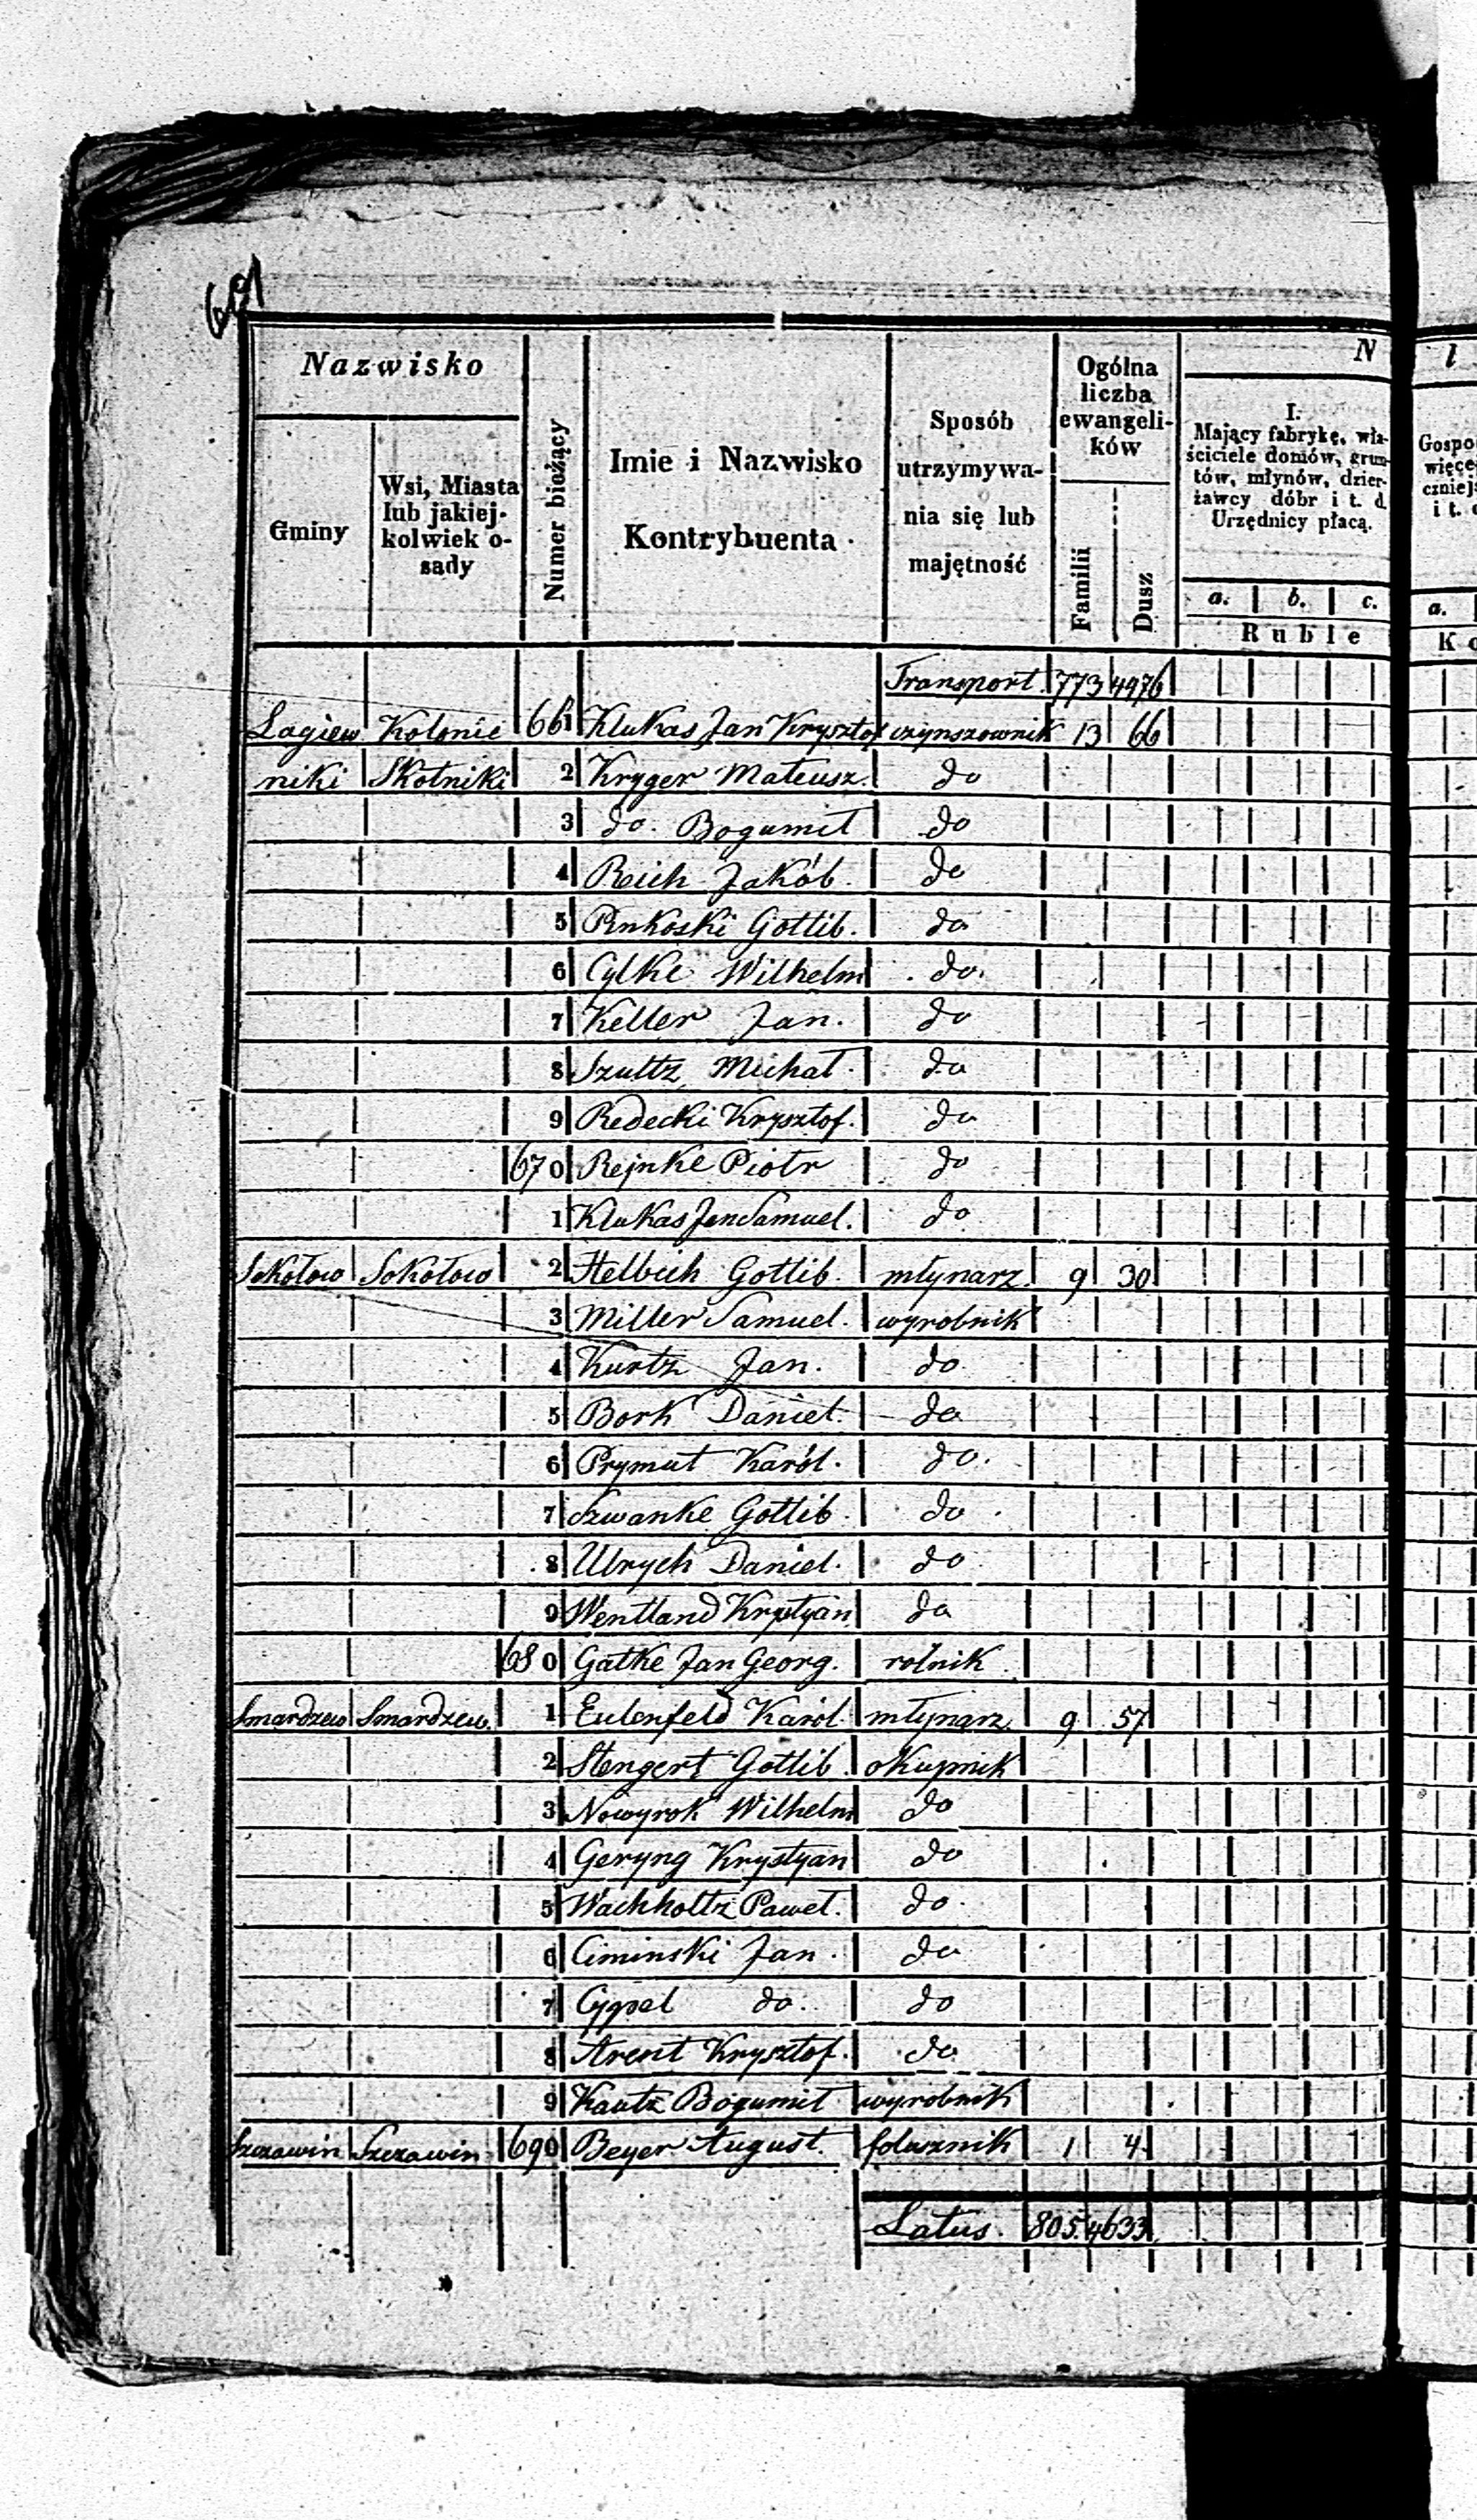 691
Nazwisko
Gminy
Wsi, Miasta
lub jakiej-
kolwiek o-
sady
Numer bieżący
Imie i Nazwisko
Kontrybuenta
Sposób
utrzymywa-
nia się lub
majętność
Ogólna
liczba
ewangeli-
ków
Familii
Dusz
N
I.
Mający fabrykę, wła-
ściciele domów, grun-
tów, młynów, dzier-
żawcy dóbr i t. d.
Urzędnicy płacą.
a. b. c.
Ruble
l
Gospo
więce
czniej
i t.
a.
K
Transport. 773 4976
Łagiew Kolonie 661 Klukas Jan Krysztof czynszownik 13 66
niki Skotniki 2 Kryger Mateusz. do
3 do. Bogumił do
4 Reich Jakób. do
5 Pinkoski Gottlib. do
6 Cylke Wilhelm do.
7 Keller Jan. do
8 Szultz Michał. do
9 Redecki Krysztof. do
670 Rejnke Piotr do
1 Klukas Jan Samuel. do
Sokołow Sokołow 2 Helbich Gottlib. młynarz. 9 30
3 Miller Samuel. wyrobnik
4 Kurtz Jan. do
5 Bork Daniel. do
6 Prymut Karól. do.
7 Szwanke Gottlib. do
8 Ulrych Daniel. do
9 Wentland Krystyan do
680 Gatke Jan Georg. rolnik
Smardzew Smardzew. 1 Eulenfeld Karól. młynarz. 9 57
2 Stengert Gottlib. okupnik
3 Nowyrok Wilhelm do
4 Geryng Krystyan do
5 Wachholtz Paweł. do
6 Ciminski Jan. do
7 do. do
8 Arent Krysztof. do
9 Kautz Bogumił wyrobnik
Szczawin Szczawin 690 Beyer August. folusznik 1 4
Latus. 805. 4633.